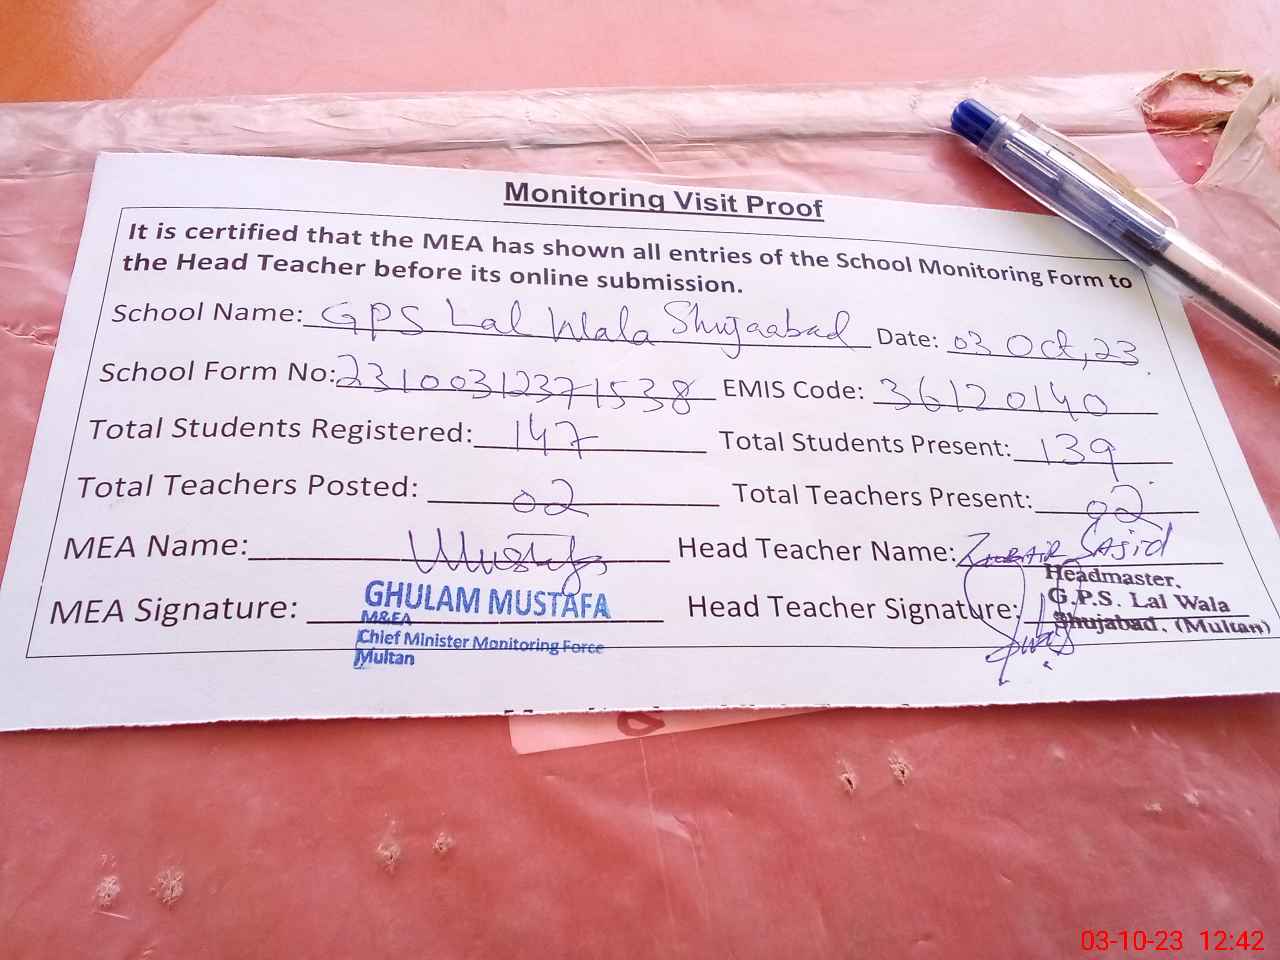 Monitoring Visit Proof
It is certified that the MEA has shown all entries of the School Monitoring Form to
the Head Teacher before its online submission.
School Name: GPS Lal Wala Shujaabad Date: 03 Oct, 23
School Form No: 23100312371538 EMIS Code: 36120140
Total Students Registered: 147 Total Students Present: 139
Total Teachers Posted: 02 Total Teachers Present: 02
MEA Name: Mustafa Head Teacher Name: Zubair Sajid
MEA Signature: Head Teacher Signature:
GHULAM MUSTAFA
M&EA
Chief Minister Monitoring Force
Multan
Headmaster.
G.P.S. Lal Wala
Shujabad. (Multan)
03-10-23 12:42